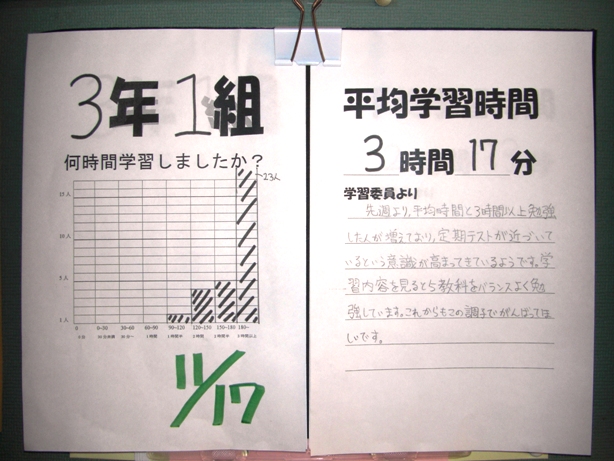 3年1組
何時間学習しましたか?
23人
15人
10人
5人
1人
0 0-30 30-60 60-90 90-120 120-150 150-180 180-
1時間 1時間半 2時間 2時間半 3時間以上
11/17
平均学習時間
3時間17分
学習委員より
先週より、平均時間と3時間以上勉強
した人が増えており、定期テストが近づいて
いるという意識が高まってきているようです。学
習内容を見ると5教科をバランスよく勉
強しています。これからもこの調子でがんばってほ
しいです。